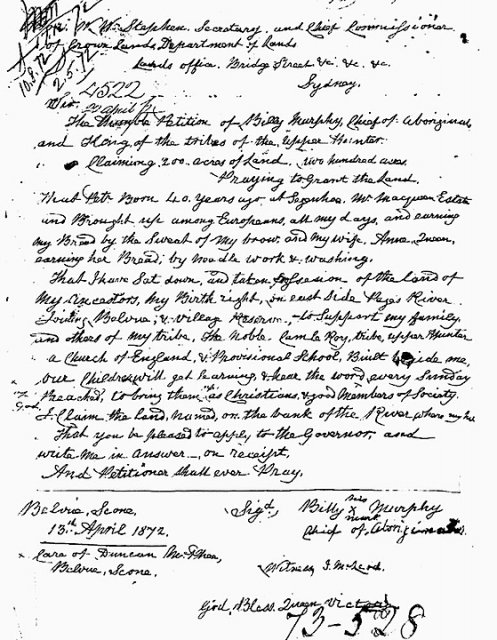 W. W. Stephen. Secretary, and Chief Commissioner
of Crown Lands Department of Lands
Lands office. Bridge Street &c. &c. &c.
Sydney.
10.8.72
2.5.72
4522
Sir 22 april 72
The Humble Petition of Billy Murphy, Chief of Aboriginal,
and King of the tribes of the Upper Hunter.
Claiming 200. acres of Land, two hundred acres
Praying to Grant the Land.
That Petr Born 40. years ago, at Segenhoe, Mr Macqueen Estate
and Brought up among Europeans, all my days, and earning
my Bread by the Sweat of My brow, and my wife, Anne, Queen,
earning her Bread, by needle work & washing.
That I have Set down, and taken possession of the Land of
My Ancestors, My Birth right, on east side Page River
Joining Belvie, & village Reserve, to Support my family,
and others of my tribe, The Noble. Cam la Roy, tribe, upper Hunter
a Church of England, & Provisional School, Built side me,
our Children will get learning, & hear the word, every Sunday
Preached, to bring them as Christians, & good Members of Society.
God,
I Claim the Land, Named, on the bank of the River where my
That you be pleased to apply to the Governor, and
write Me in answer on receipt,
And Petitioner Shall ever Pray.
Belvie, Scone,
13th April 1872.
Sigd, Billy his x mark Murphy
Chief of Aboriginals.
Care of Duncan
Belvie, Scone.
Witness J. McLeod.
God, Bless Queen Victoria
73-528